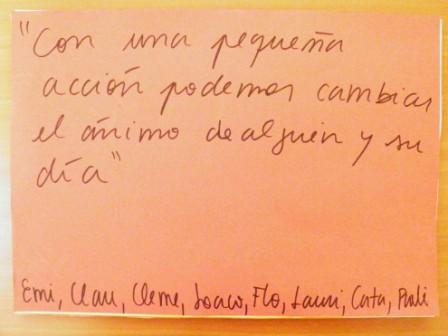 "Con una pequeña
acción podemos cambiar
el ánimo de alguien y su
día"
Emi, Clau, Cleme, Joaco, Flo, Lauri, Cata,